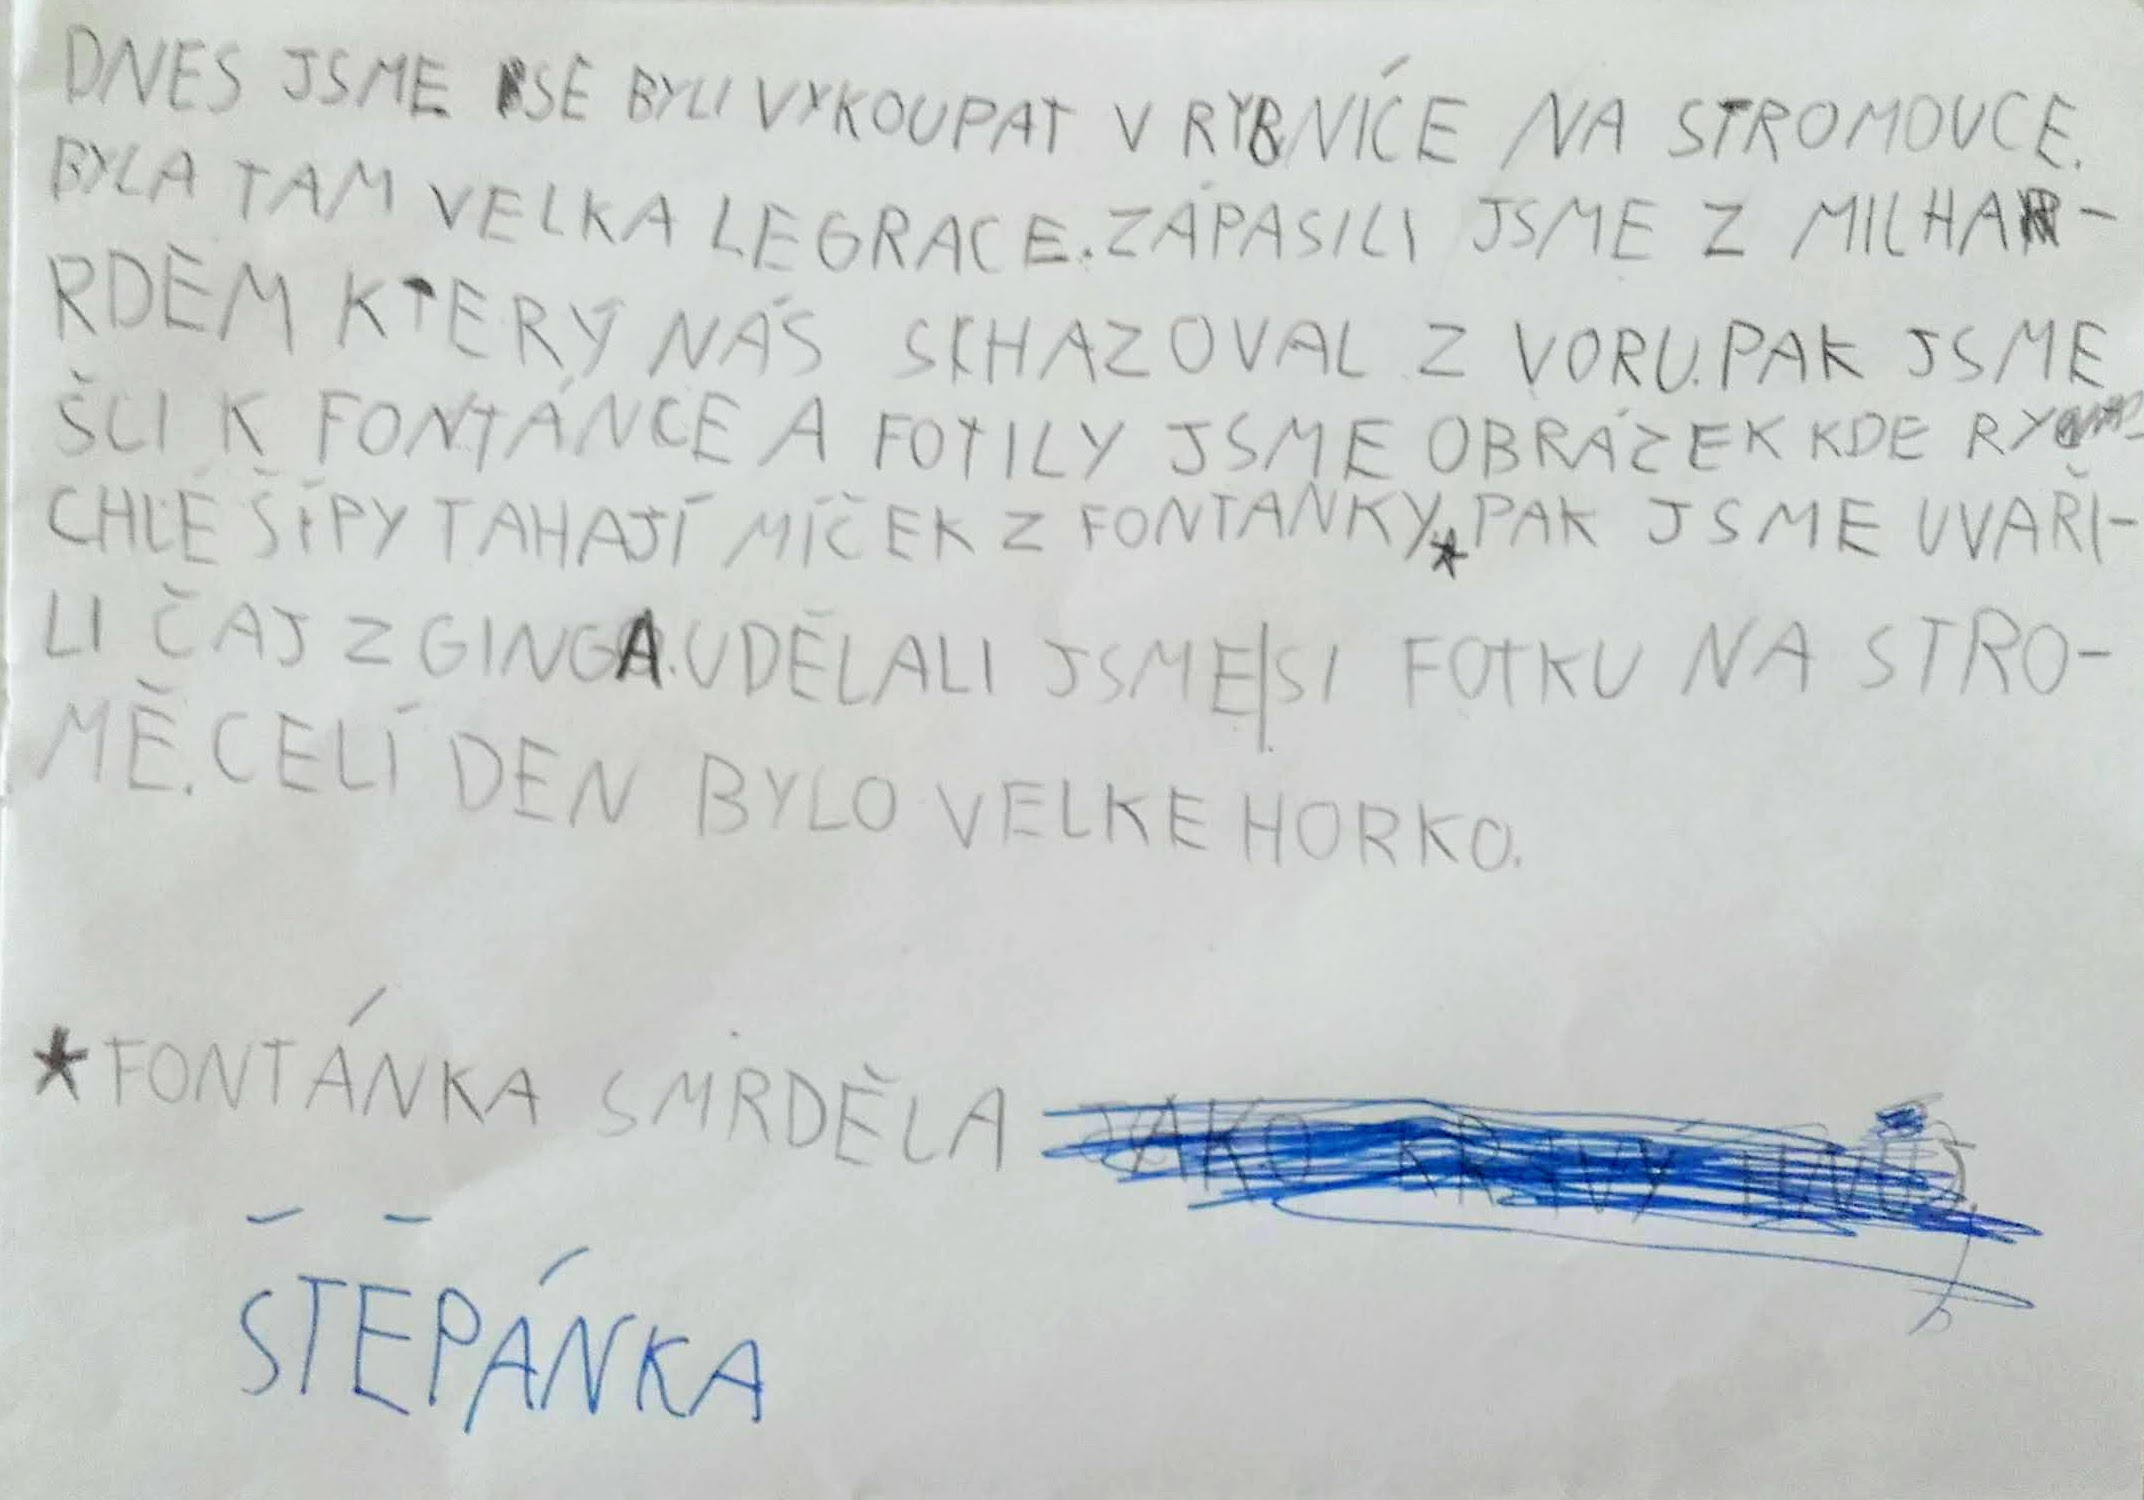 DNES JSME SE BYLI VYKOUPAT V RYBNÍCE NA STROMOVCE.
BYLA TAM VELKA LEGRACE. ZÁPASILI JSME Z MILHA-
RDEM KTERÝ NÁS SCHAZOVAL Z VORU. PAK JSME
ŠLI K FONTÁNCE A FOTILY JSME OBRÁZEK KDE RY-
CHLÉ ŠÍPY TAHAJÍ MÍČEK Z FONTANKY* PAK JSME UVAŘI-
LI ČAJ Z GINGA. UDĚLALI JSME|SI FOTKU NA STRO-
MĚ. CELÍ DEN BYLO VELKE HORKO.
*FONTÁNKA SMRDĚLA JAKO KRAVÝ HNŮJ.
ŠTĚPÁNKA